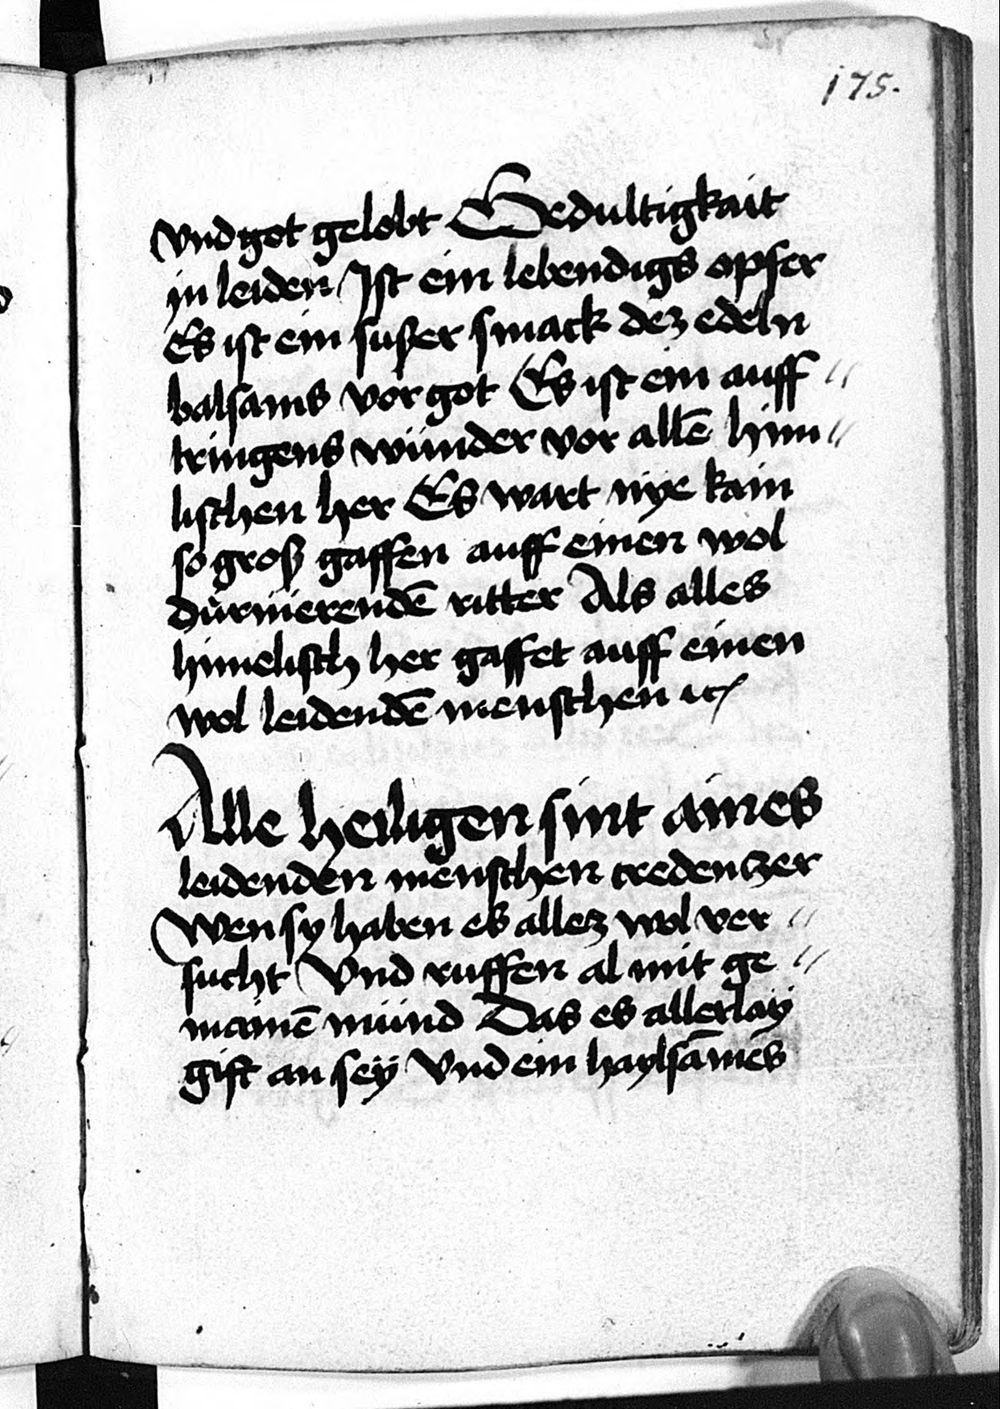 175.
vnd got gelobt Gedultigkait
in leiden Ist ein lebendigs opfer
Es ist ein sußer smack dez edeln
balsams vor got Es ist ein auff //
tringens wunder vor allē him //
lischen her Es wart nÿe kain
so groß gaffen auff einen wol
durnierendē ritter Als alles
himelisch her gaffet auff einen
wol leidendē menschen ꝛc
Alle heiligen sint aines
leidenden menschen credenczer
Wen sy haben es allez wol ver //
sucht Vnd ruffen al mit ge //
mainē mund Das es allerlaÿ
gift an seÿ Vnd ein haylsāmes